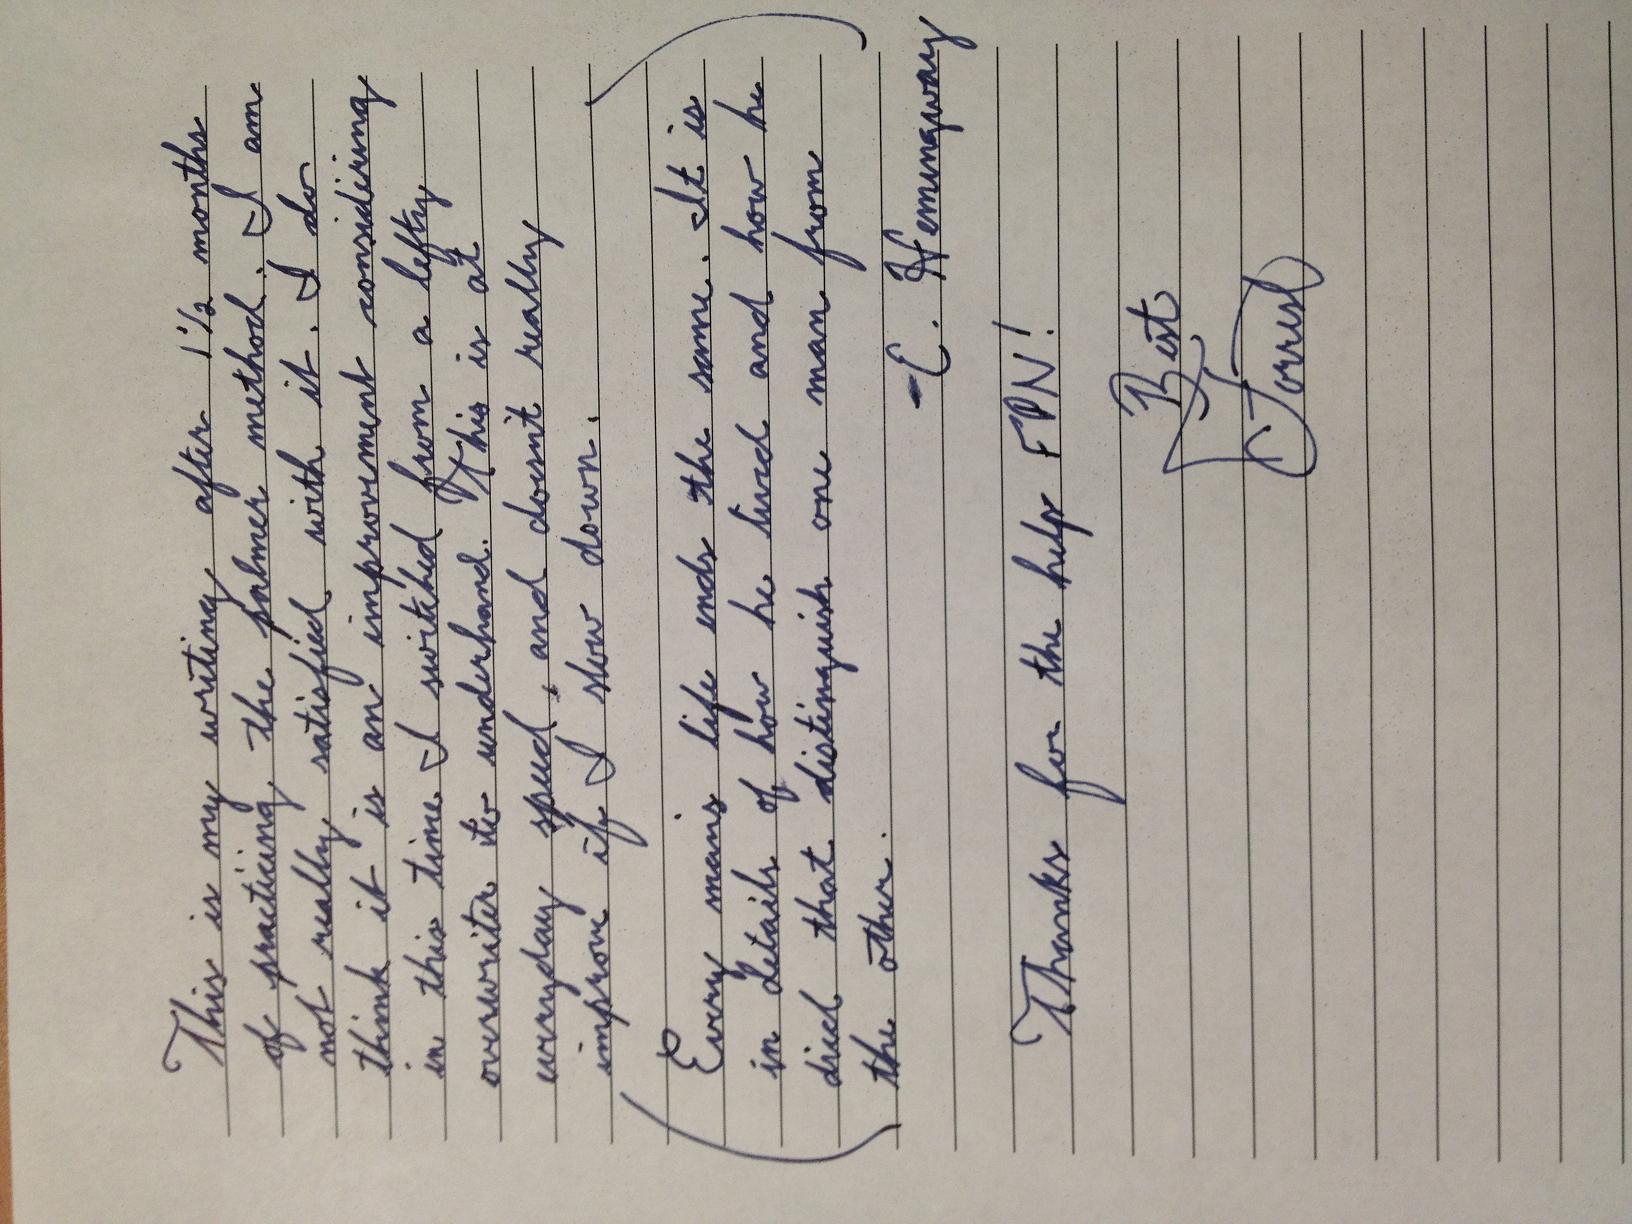 This is my writing after 1 1/2 months
of practicing the palmer method. I am
not really satisfied with it. I do
think it is an improvement considering
in this time I switched from a lefty
overwriter to underhand. This is at
everyday speed, and doesn't really
improve if I slow down.
Every man's life ends the same. It is
in details of how he lived and how he
died that distinguish one man from
the other.
- E. Hemingway
Thanks for the help FPN!
Best